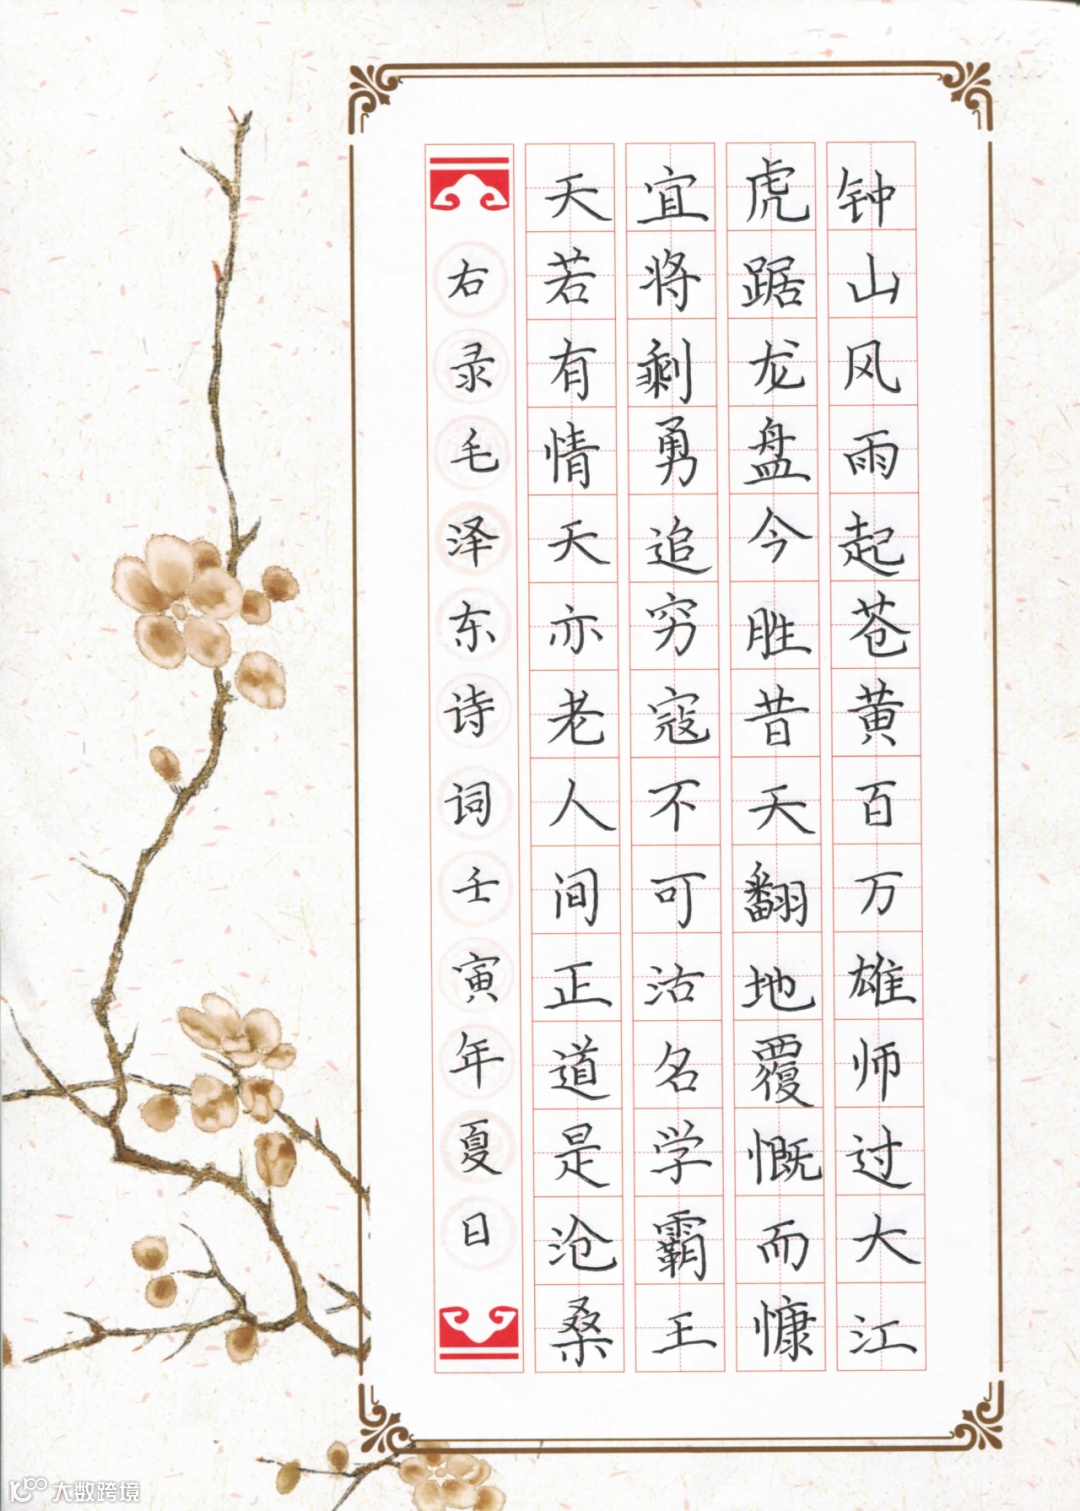 钟山风雨起苍黄百万雄师过大江
虎踞龙盘今胜昔天翻地覆慨而慷
宜将剩勇追穷寇不可沽名学霸王
天若有情天亦老人间正道是沧桑
右录毛泽东诗词壬寅年夏日
大数跨境